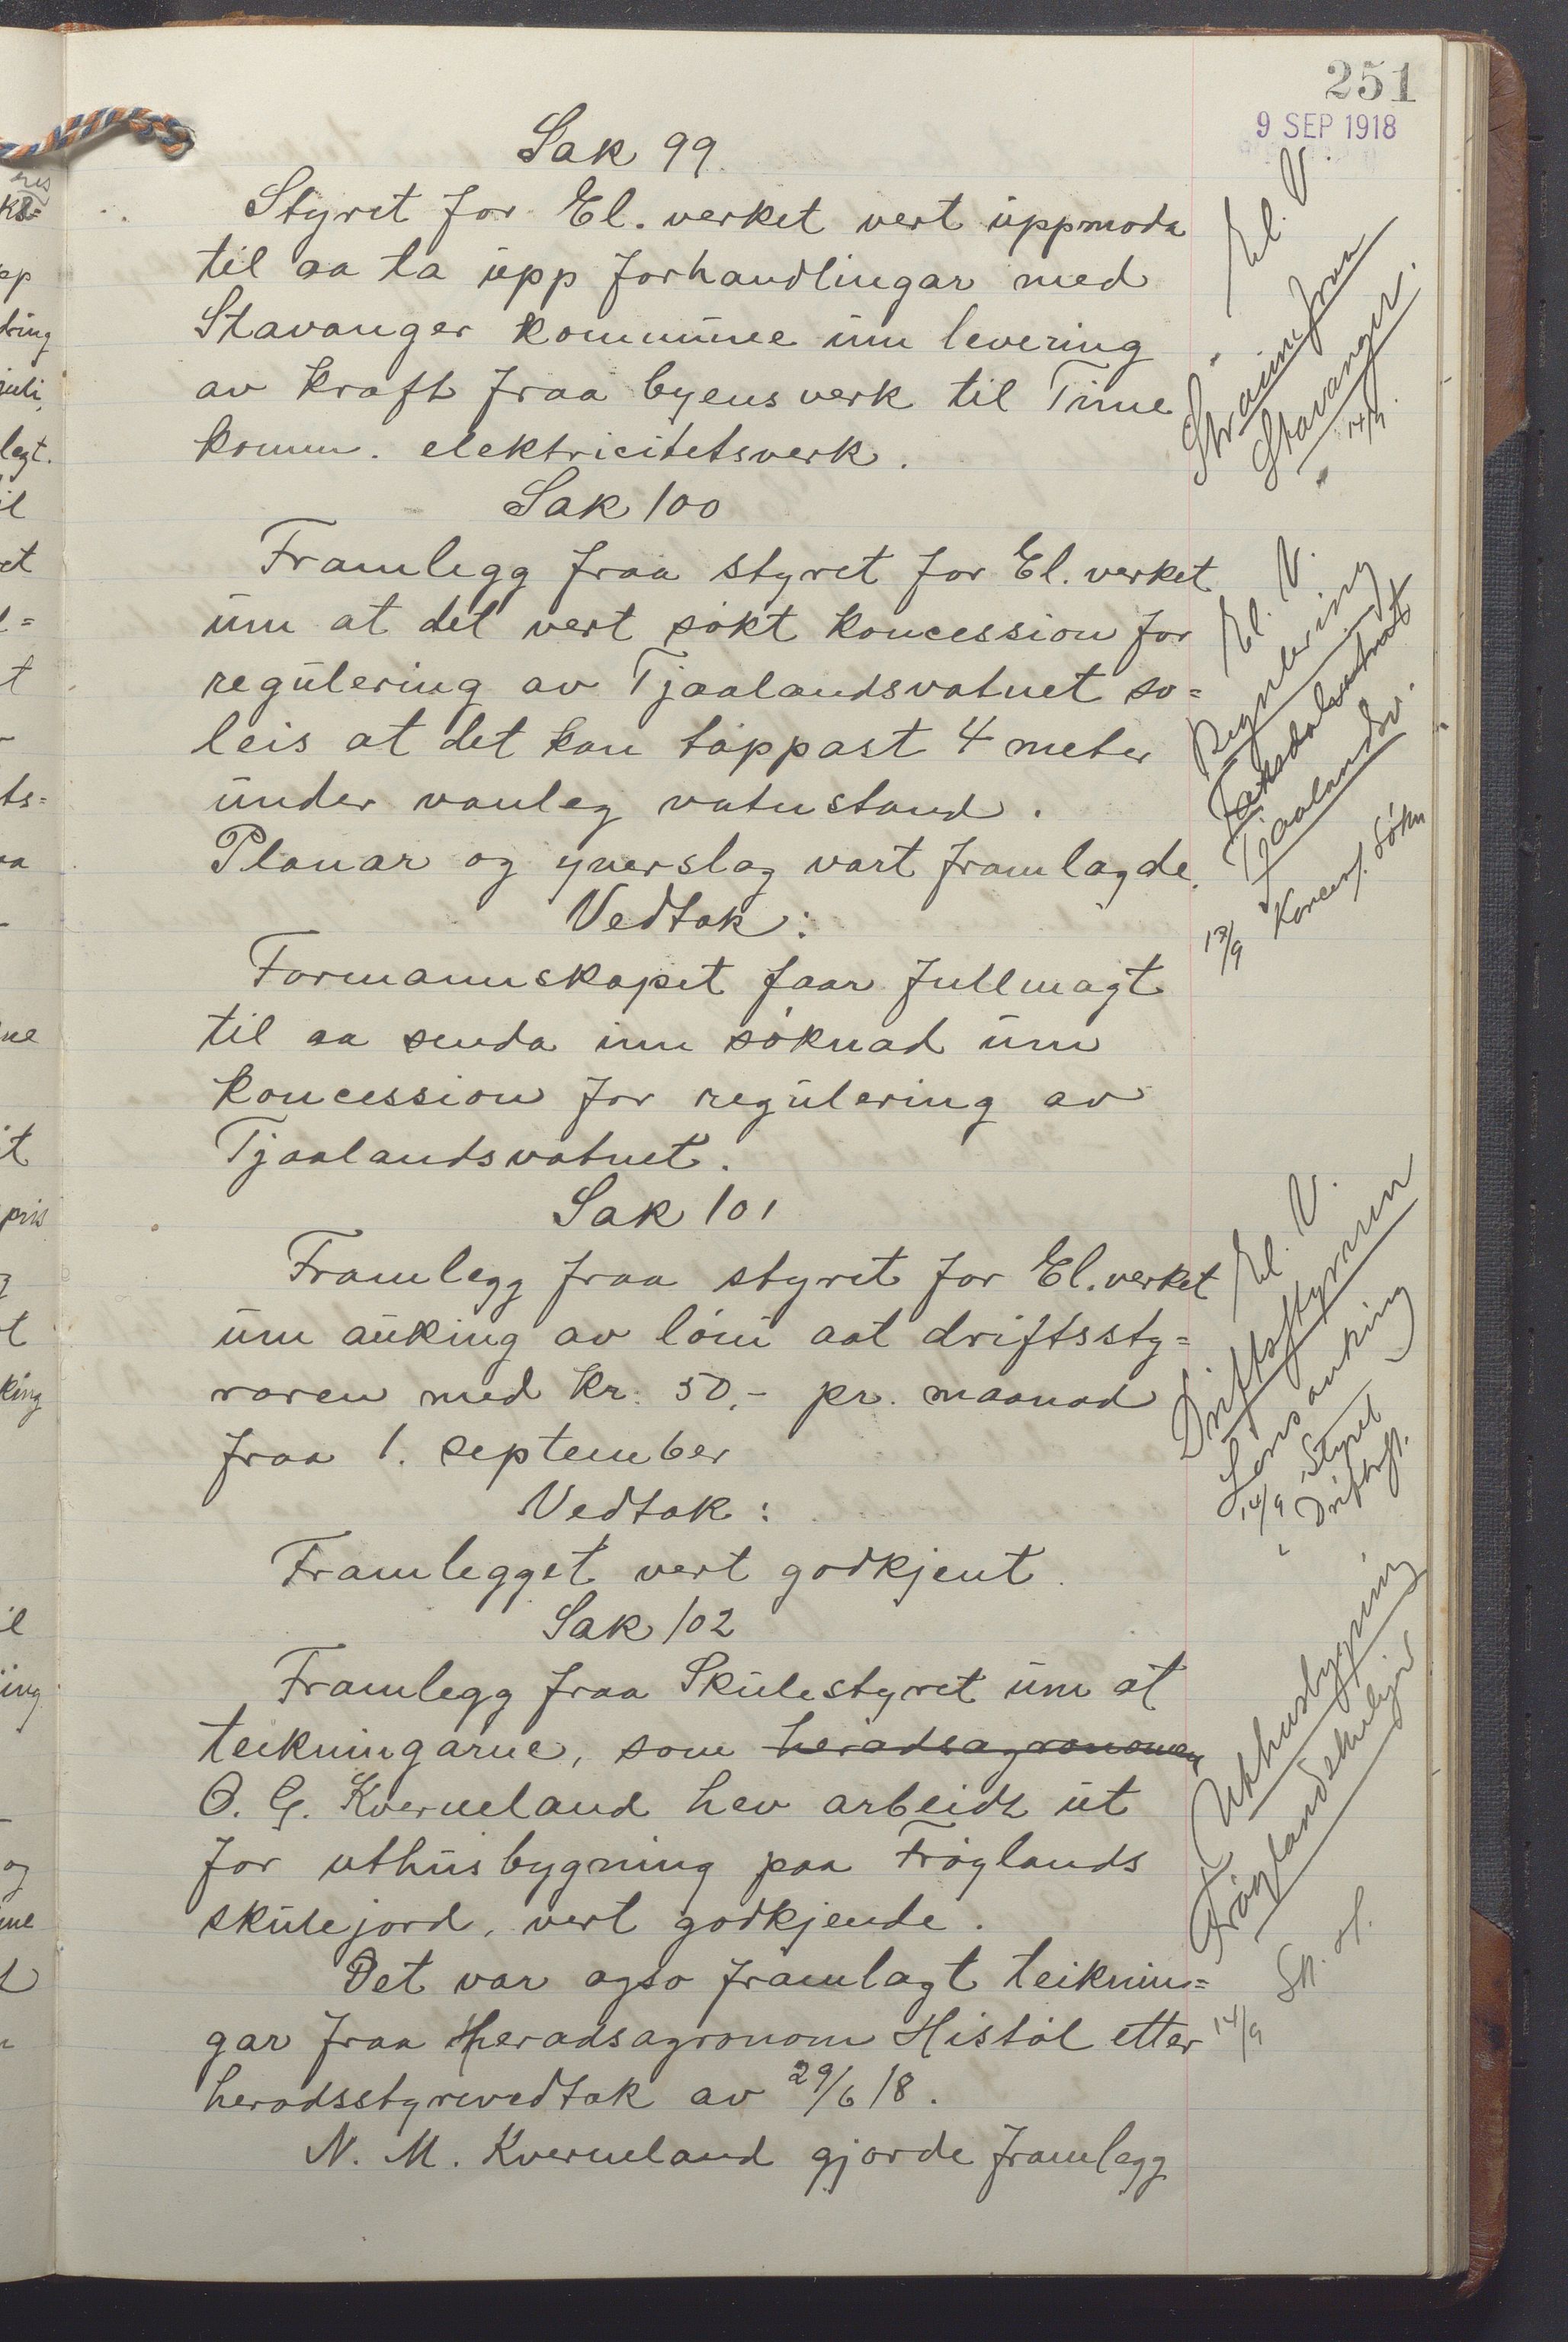 251
9 SEP 1918
Sak 99.
Styret for El. verket vert uppmoda
til aa ta upp forhandlingar med
Stavanger kommune um levering
av kraft fraa byens verk til Time
komm. elektricitetsverk.
El. V.
Straum fraa
Stavanger.
14/9
Sak 100
Framlegg fraa styret for El. verket
um at det vert søkt koncession for
regulering av Tjaalandsvatnet so=
leis at det kan tappast 4 meter
under vanleg vatnstand.
Planar og yverslag vart framlagde.
Vedtak:
Formannskapet faar fullmagt
til aa senda inn søknad um
koncession for regulering av
Tjaalandsvatnet.
El. V.
Regulering
Tjaalandsv.
13/9 Koncess. søkn
Sak 101
Framlegg fraa styret for El. verket
um auking av løni aat driftssty=
raren med kr. 50,- pr. maanad
fraa 1. september
Vedtak:
Framlegget vert godkjent.
El. V.
Driftsstyraren
Lønsauking
14/9 Styret
Driftsst.
Sak 102
Framlegg fraa Skulestyret um at
teikningarne, som heradsagronomen
O. G. Kverneland hev arbeidt ut
for uthusbygning paa Frøylands
skulejord, vert godkjende.
Det var ogso framlagt teiknin=
gar fraa heradsagronom Histøl etter
heradsstyrevedtak av 29/6 18.
N. M. Kverneland gjorde framlegg
Uthusbygning
Frøylandskulejord
14/9 Sk. st.